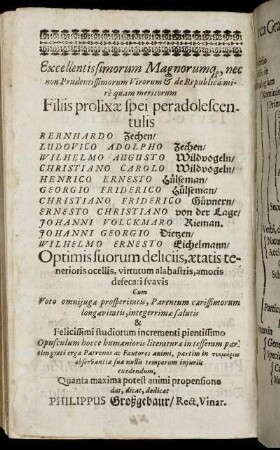 Excellentissimorum Magnorumq, nec
non Prudentissimorum Virorum & de Republicâ mi-
rè quam meritorum
Filiis prolixæ spei peradolescen-
tulis
BERNHARDO Zechen/
LUDOVICO ADOLPHO Zechen/
WILHELMO AUGUSTO Wildvogeln/
CHRISTIANO CAROLO Wildvogeln/
HENRICO ERNESTO Hülseman/
GEORGIO FRIDERICO Hülseman/
CHRISTIANO FRIDERICO
ERNESTO CHRISTIANO von der Lage/
JOHANNI VOLCKMARO Rieman.
JOHANNI GEORGIO Dietzen/
WILHELMO ERNESTO Eichelmann/
Optimis suorum deliciis, ætatis te-
nerioris ocellis, virtutum alabastris, amoris
defecati svavis
Cum
Voto omnijuga prosperitatis, Parentum carissimorum
longævitatis, integerrima salutis
&
Felicissimi studiorum incrementi pientissimo
Opusculum hocce humanioris literatura in tesseram par-
tim grati erga Patronos ac Fautores animi, partim in
observantiæ sua nullis temporum injuriis
exedendum,
Quanta maxima potest animi propensione
dat, dicat, dedicat
PHILIPPUS Großgebaur/ Rect. Vinar.